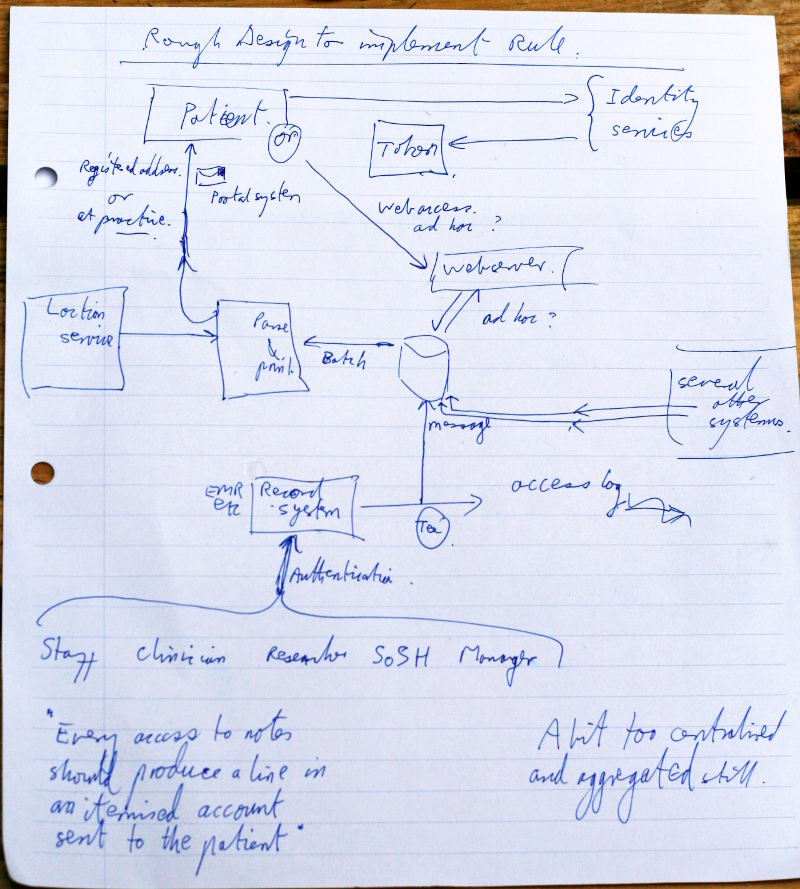 Rough Design to implement Rule.
Patient.
or
Identity
services
Token
Registered address.
or
at practice.
Postal system
web access.
ad hoc ?
webserver.
ad hoc ?
Loction
service
Parse
&
print.
Batch
message
several
other
systems.
EMR
etc
Record
system
access log
Tee
Authentication.
Staff Clinician Researcher SoSH Manager
"Every access to notes
should produce a line in
an itemised account
sent to the patient"
A bit too centralised
and aggregated still.